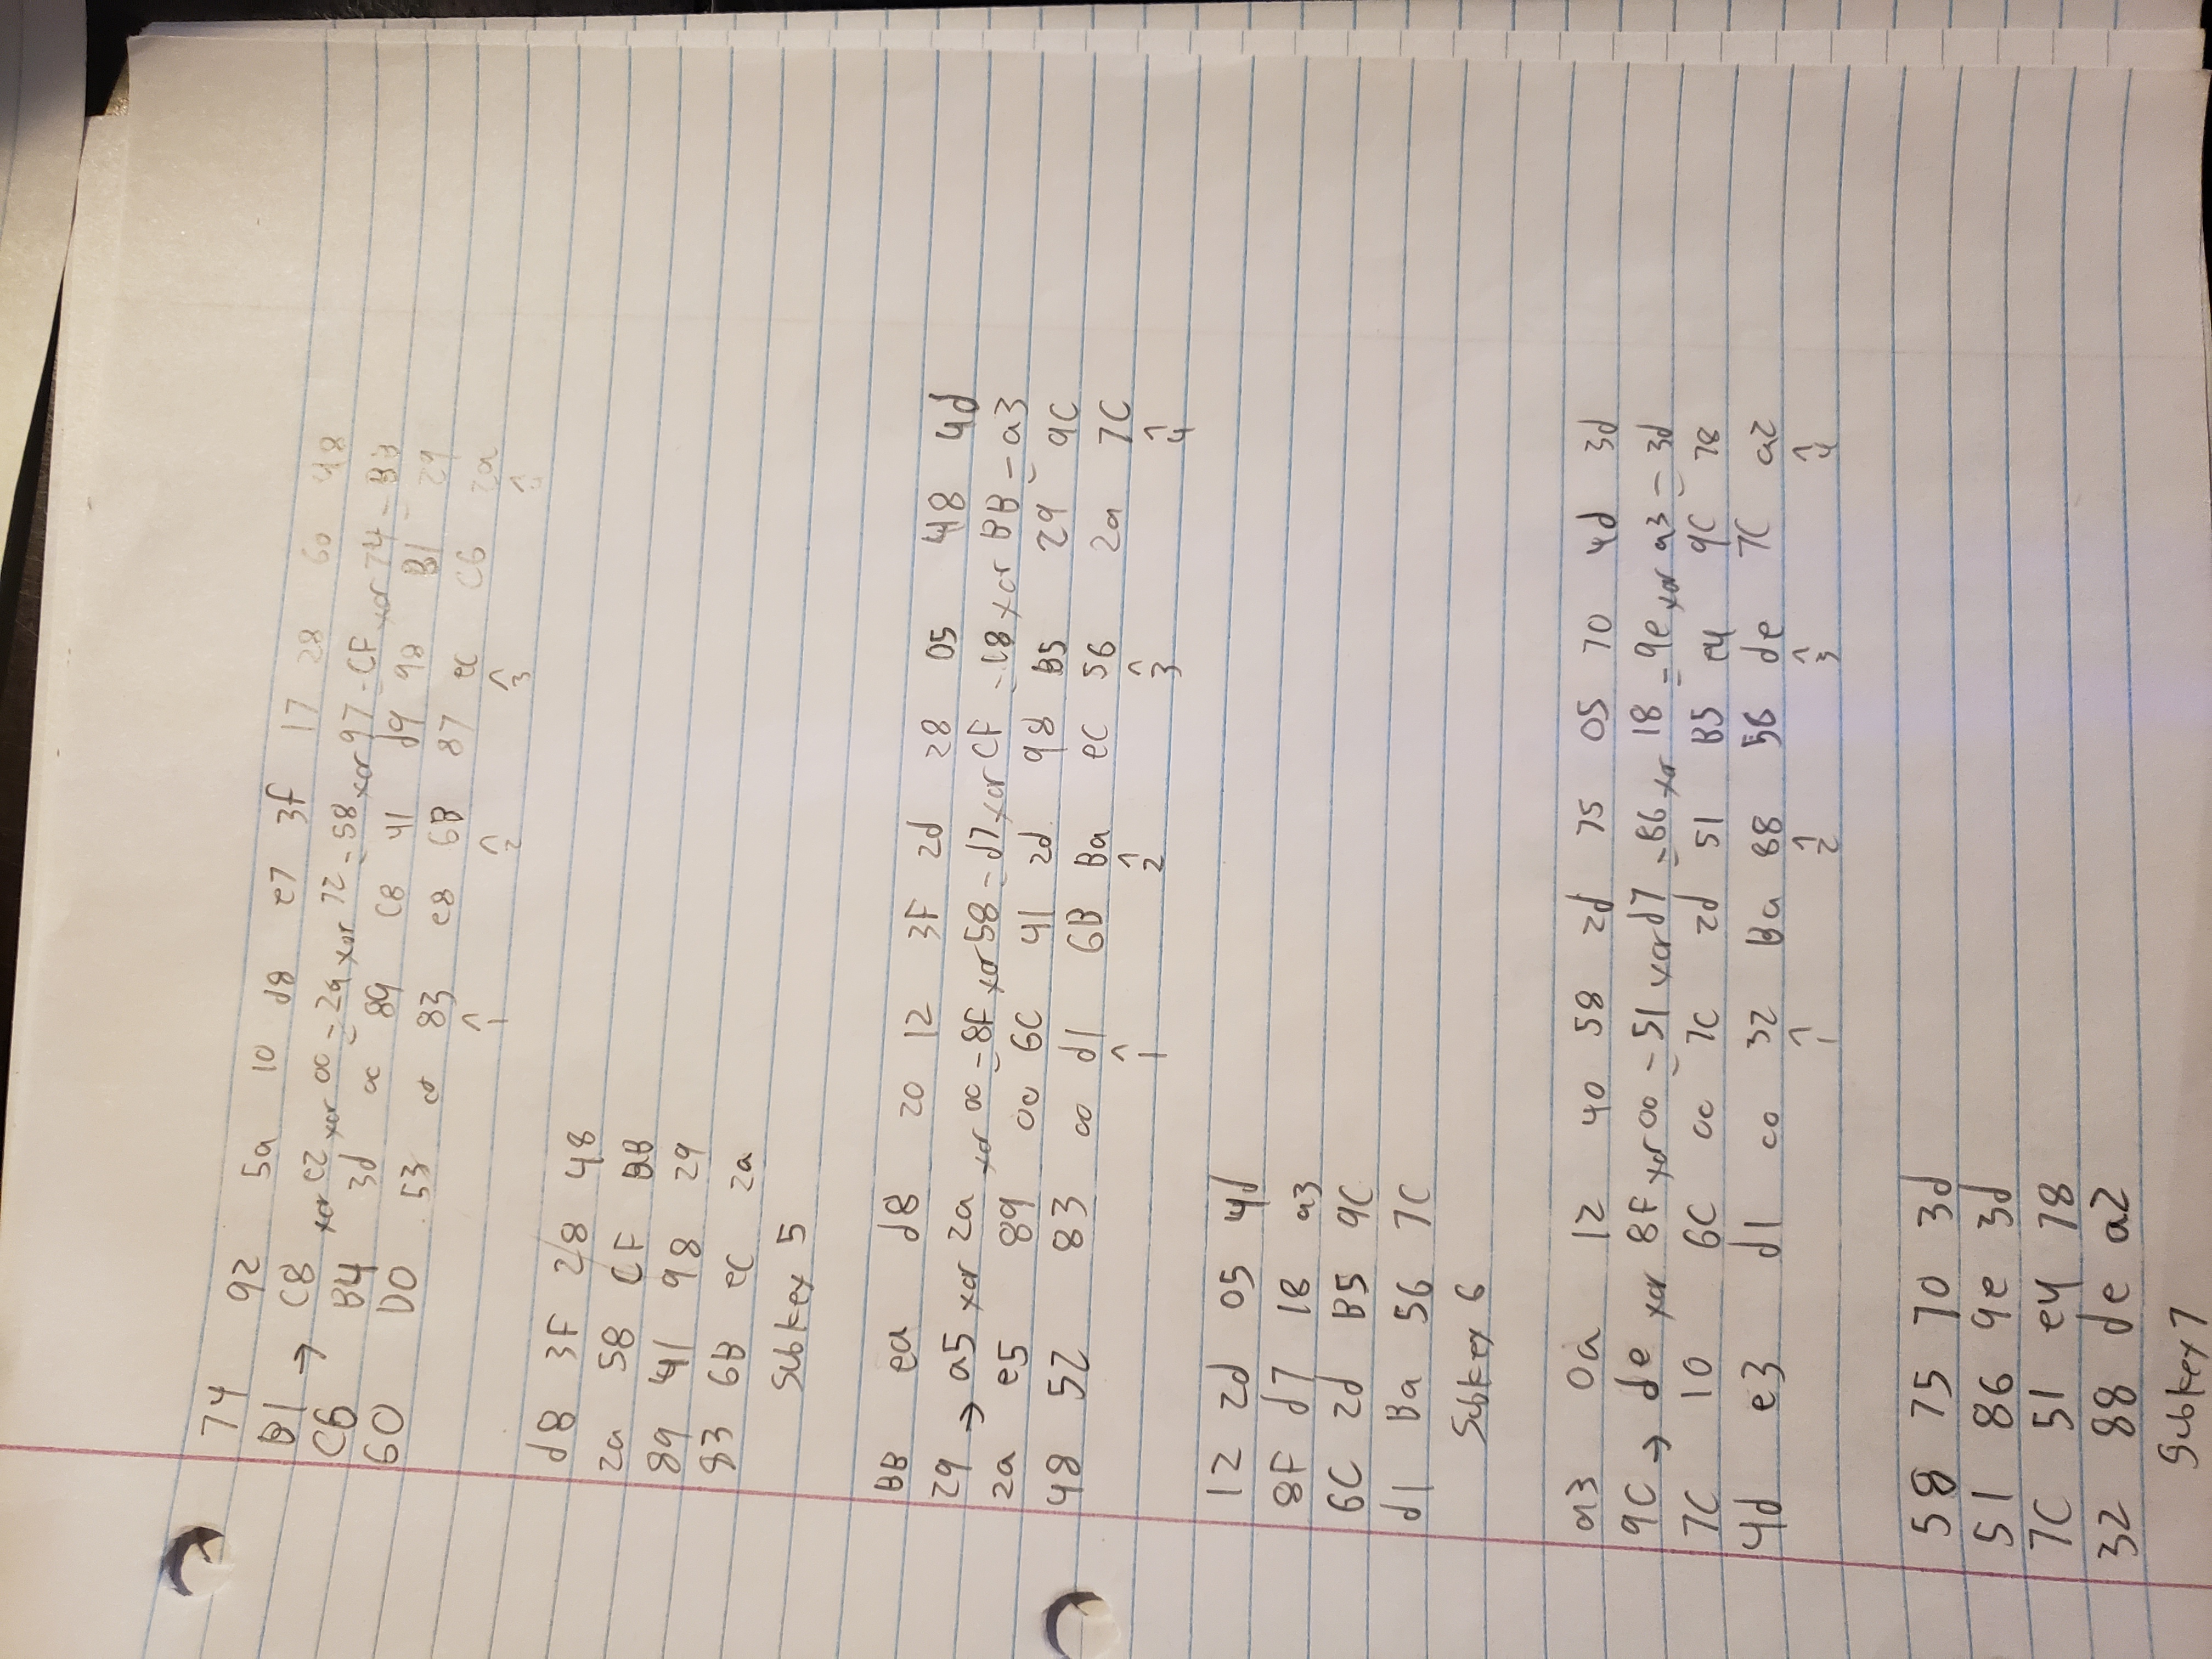 74 92 5a 10 d8 e7 3f 17 28 60 48
B1 → C8 xor e2 xor 00 = 2a xor 72 = 58 xor 97 = CF xor 74 = BB
C6 B4 3d 00 89 C8 41 d9 98 B1 29
60 D0 53 00 83 e8 6B 87 ec C6 2a
^ ^ ^ ^
1 2 3
d8 3F 28 48
2a 58 CF BB
89 41 98 29
83 6B ec 2a
Subkey 5
BB ea d8 20 12 3F 2d 28 05 48 4d
29 → a5 xor 2a xor 00 = 8F xor 58 = d7 xor CF = 18 xor BB = a3
2a e5 89 00 6C 41 2d 98 B5 29 9C
48 52 83 00 d1 6B Ba ec 56 2a 7C
^ ^ ^ ^
1 2 3 4
12 2d 05 4d
8F d7 18 a3
6C 2d B5 9C
d1 Ba 56 7C
Subkey 6
a3 0a 12 40 58 2d 75 05 70 4d 3d
9C → de xor 8F xor 00 = 51 xor d7 = 86 xor 18 = 9e xor a3 = 3d
7C 10 6C 00 7C 2d 51 B5 e4 9C 78
4d e3 d1 00 32 Ba 88 56 de 7C a2
^ ^ ^ ^
1 2 3 4
58 75 70 3d
51 86 9e 3d
7C 51 e4 78
32 88 de a2
Subkey 7